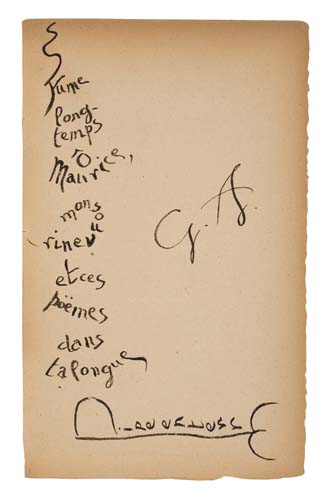 Fume
long-
temps
ô
Maurice,
mons
ou
rinev
et ces
poëmes
dans
ta longue
G. A.